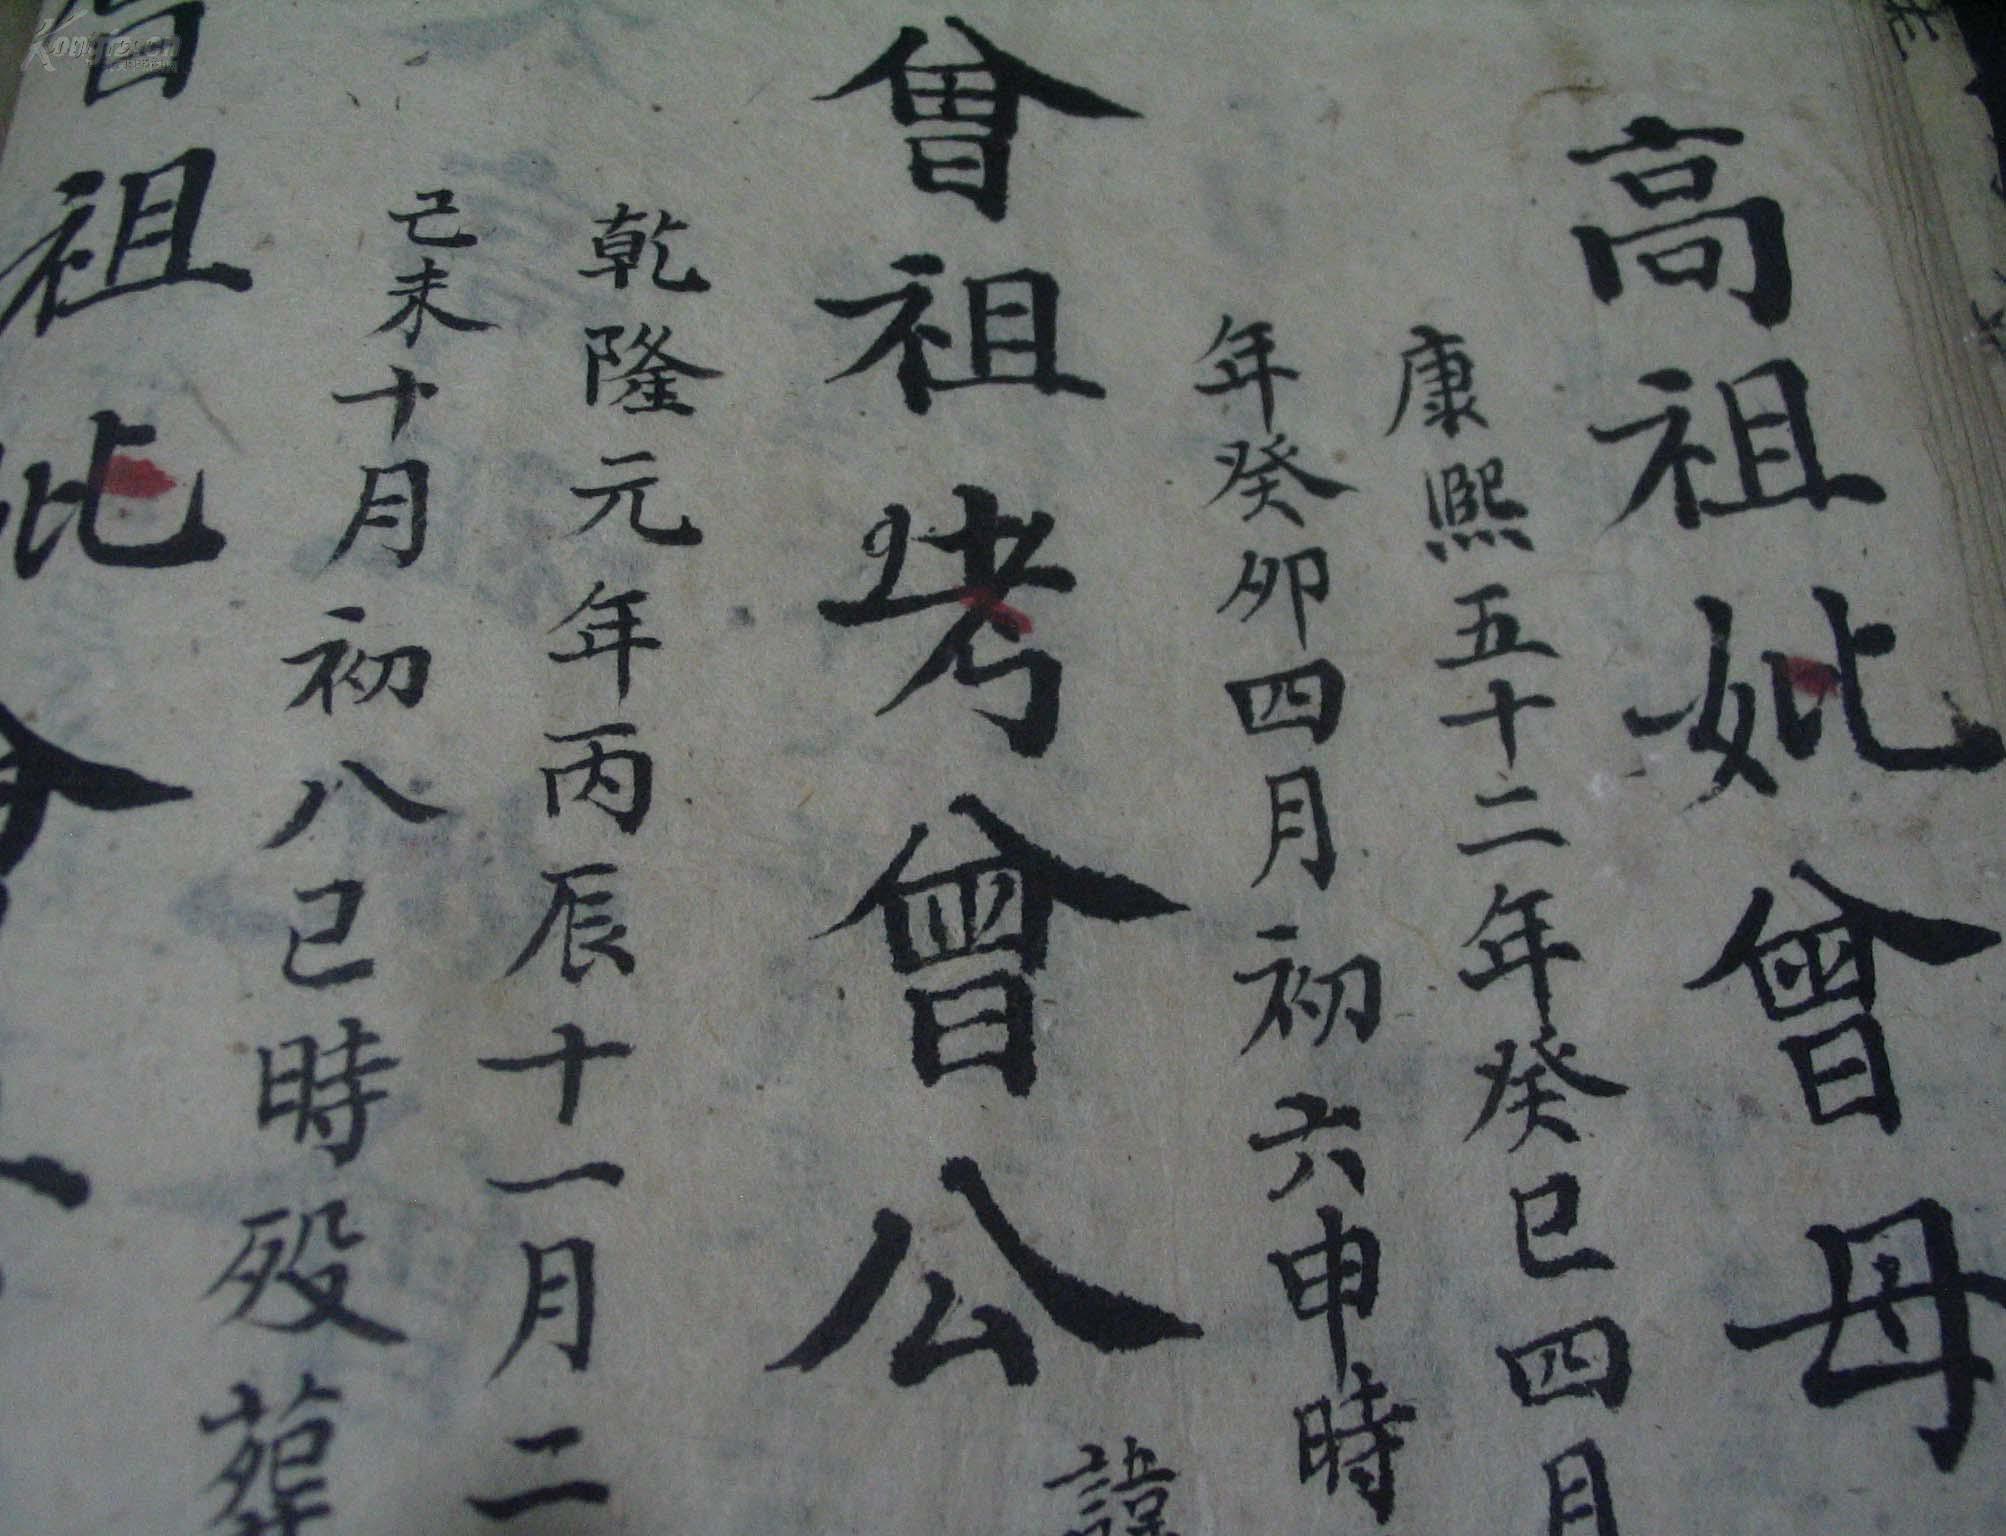 高祖妣曾母
康熙五十二年癸巳四月
年癸卯四月初六申時
曾祖考曾公
諱
乾隆元年丙辰十一月二
己未十月初八巳時殁葬
祖妣